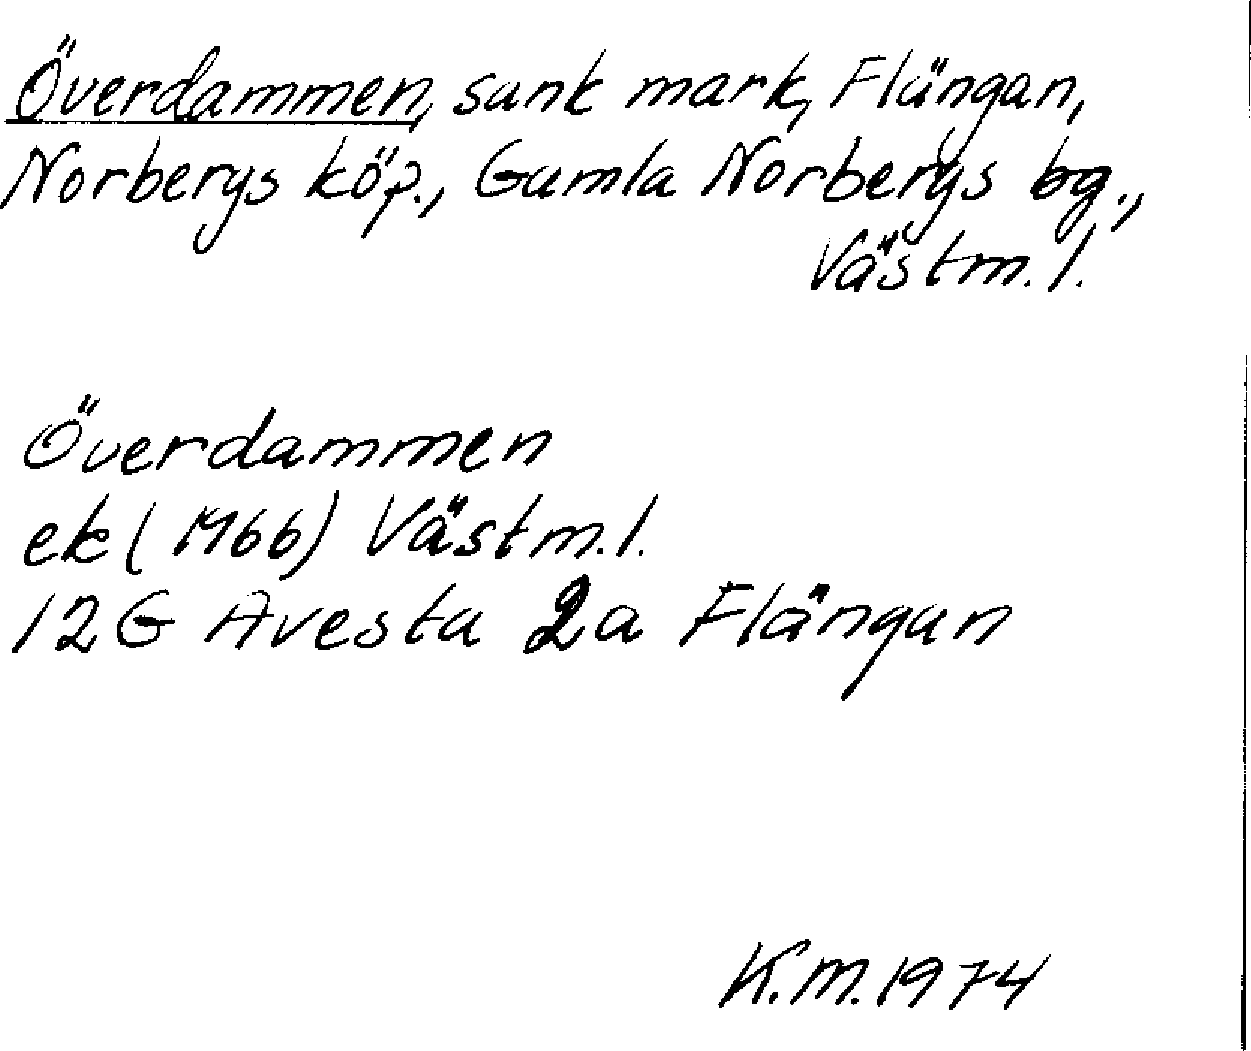 Överdammen, sank mark, Flängan,
Norbergs köp., Gamla Norbergs bg.,
Västm.l.
Överdammen
ek (1966) Västm.l.
12G Avesta 2a Flängan
K.M. 1974